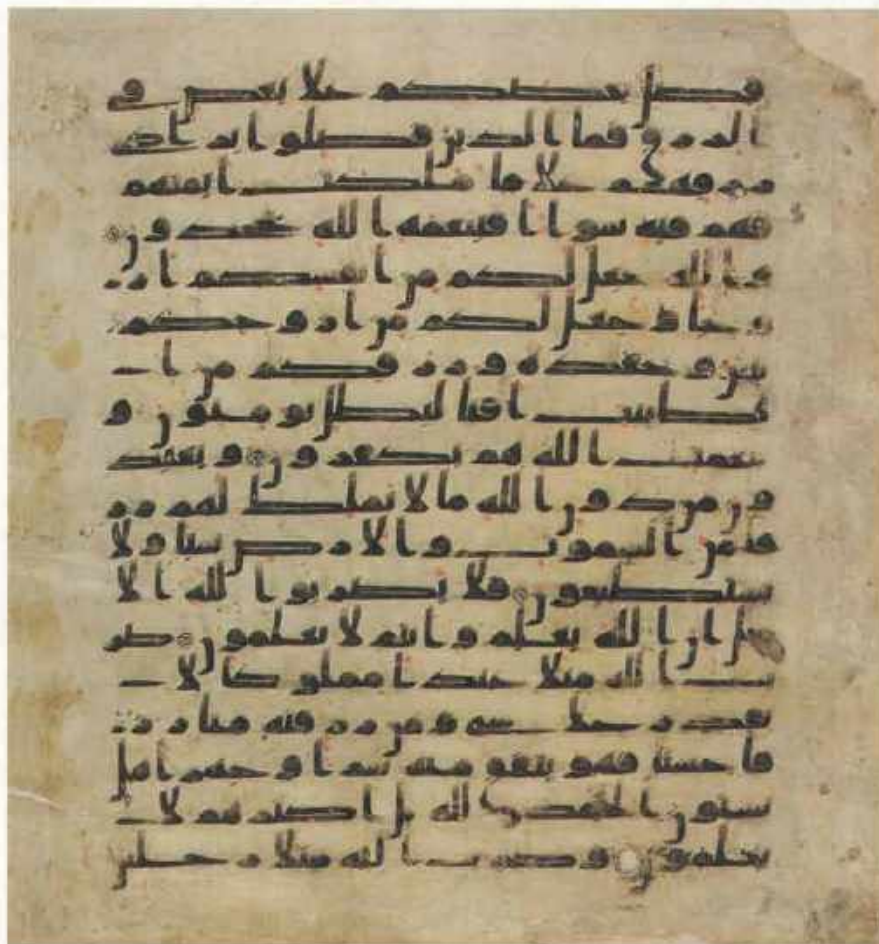 فضل بعضكم على بعض في
الرزق فما الذين فضلوا برادي
رزقهم على ما ملكت ايمنهم
فهم فيه سوا افبنعمة الله يجحدون
والله جعل لكم من انفسكم ازو
جا وجعل لكم من ازوجكم
بنين وحفدة ورزقكم من ا
لطيبت افبالبطل يومنون و
بنعمت الله هم يكفرون ويعبد
ون من دون الله ما لا يملك لهم رز
قا من السموت والارض شيا ولا
يستطيعون فلا تضربوا لله الا
مثل ان الله يعلم وانتم لا تعلمون ضر
ب الله مثلا عبدا مملوكا لا
يقدر على شي ومن رزقنه منا رز
قا حسنا فهو ينفق منه سرا وجهرا هل
يستون الحمد لله بل اكثرهم لا
يعلمون وضرب الله مثلا رجلين